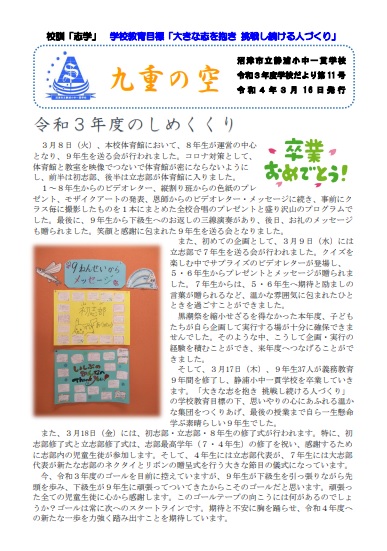 校訓「志学」 学校教育目標「大きな志を抱き 挑戦し続ける人づくり」
九重の空
沼津市立静浦小中一貫学校
令和３年度学校だより第11号
令和４年３月16日発行
令和３年度のしめくくり
３月８日（火）、本校体育館において、８年生が運営の中心
となり、９年生を送る会が行われました。コロナ対策として、
体育館と教室を映像でつないで体育館が密にならないように
し、前半は初志部、後半は立志部が体育館に入りました。
１～８年生からのビデオレター、縦割り班からの色紙のプレ
ゼント、モザイクアートの発表、恩師からのビデオレター・メッセージに続き、事前にク
ラス毎に撮影したものを１本にまとめた全校合唱のプレゼントと盛り沢山のプログラムで
した。最後に、９年生から下級生へのお返しの三線演奏があり、後日、お礼のメッセージ
も贈られました。笑顔と感謝に包まれた９年生を送る会となりました。
卒業
おめでとう！
また、初めての企画として、３月９日（水）には
立志部で７年生を送る会が行われました。クイズを
楽しむ中でサプライズのビデオレターが登場し、
５・６年生からプレゼントとメッセージが贈られま
した。７年生からは、５・６年生へ期待と励ましの
言葉が贈られるなど、温かな雰囲気に包まれたひと
ときを過ごすことができました。
黒潮祭を縮小せざるを得なかった本年度、子ども
たちが自ら企画して実行する場が十分に確保できま
せんでした。そのような中、こうして企画・実行の
経験を積むことができ、来年度へつなげることがで
きました。
そして、３月17日（木）、９年生37人が義務教育
９年間を修了し、静浦小中一貫学校を卒業していき
ます。「大きな志を抱き 挑戦し続ける人づくり」
の学校教育目標の下、思いやりの心にあふれる温か
な集団をつくりあげ、最後の授業まで自ら一生懸命
学ぶ素晴らしい９年生でした。
９ねんせいから
メッセージ
また、３月18日（金）には、初志部・立志部・８年生の修了式が行われます。特に、初
志部修了式と立志部修了式は、志部最高学年（７・４年生）の修了を祝い、感謝するため
に志部内の児童生徒が参加します。そして、４年生には立志部代表が、７年生には大志部
代表が新たな志部のネクタイとリボンの贈呈式を行う大きな節目の儀式になっています。
今、令和３年度のゴールを目前に控えていますが、９年生が下級生を引っ張りながら先
頭を歩み、下級生が９年生に頑張ってついてきたからこそのゴールだと思います。頑張っ
た全ての児童生徒に心から感謝します。このゴールテープの向こうには何があるのでしょ
うか？ゴールは常に次へのスタートラインです。期待と不安に胸を躍らせ、令和４年度へ
の新たな一歩を力強く踏み出すことを期待しています。